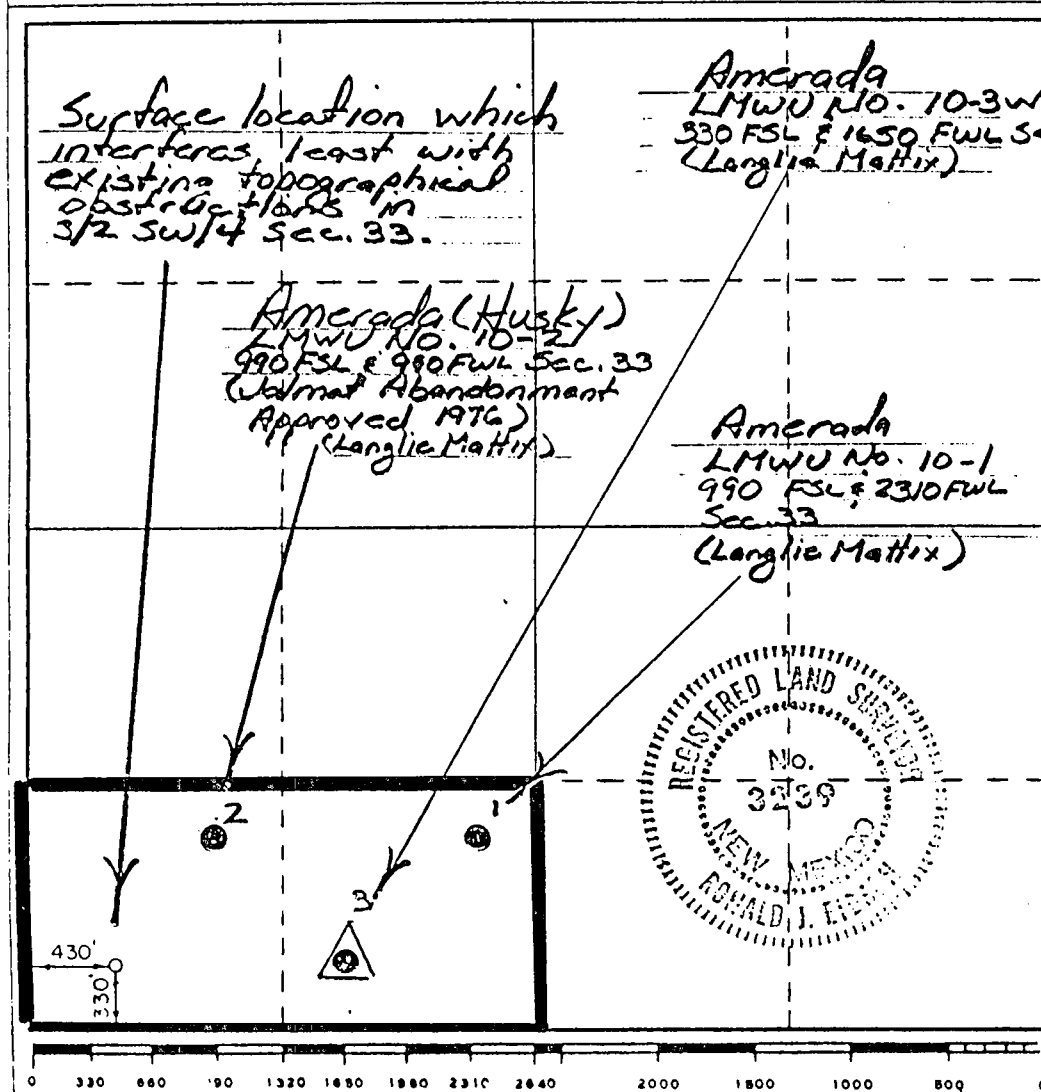 Surface location which
interferes least with
existing topographical
obstructions in
S/2 SW/4 Sec. 33.
Amerada
LMWU No. 10-3W
330 FSL & 1650 FWL Se
(Langlie Mattix)
Amerada (Husky)
LMWU No. 10-2
990 FSL & 990 FWL Sec. 33
(Jalmat Abandonment
Approved 1976)
(Langlie Mattix)
Amerada
LMWU No. 10-1
990 FSL & 2310 FWL
Sec. 33
(Langlie Mattix)
REGISTERED LAND SURVEYOR
No.
3239
NEW MEXICO
RONALD J.
2
1
3
430'
330'
0 330 660 90 1320 1650 1980 2310 2640 2000 1500 1000 500